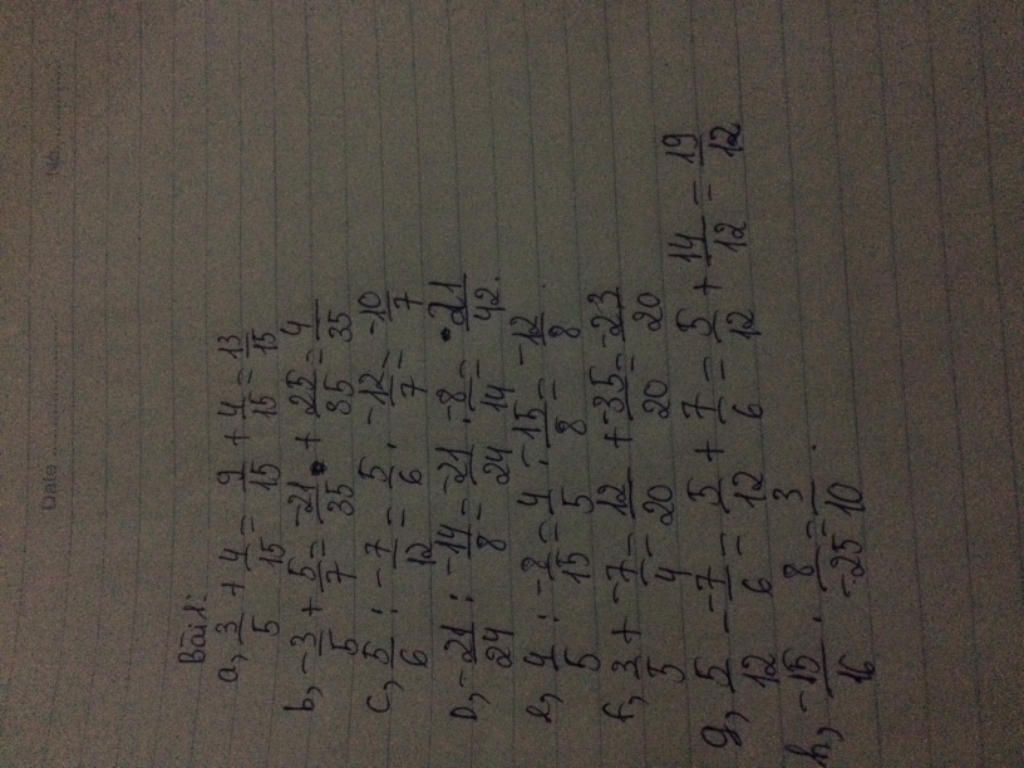 Date No.
Bài 1:
a, 3/5 + 4/15 = 9/15 + 4/15 = 13/15
b, -3/5 + 5/7 = -21/35 + 25/35 = 4/35
c, 5/6 : -7/12 = 5/6 . -12/7 = -10/7
D, -21/24 : -14/8 = -21/24 . -8/14 = 21/42.
e, 4/5 : -8/15 = 4/5 . -15/8 = -12/8
f, 3/5 + -7/4 = 12/20 + -35/20 = -23/20
g, 5/12 - -7/6 = 5/12 + 7/6 = 5/12 + 14/12 = 19/12
h, -15/16 . 8/-25 = 3/10.